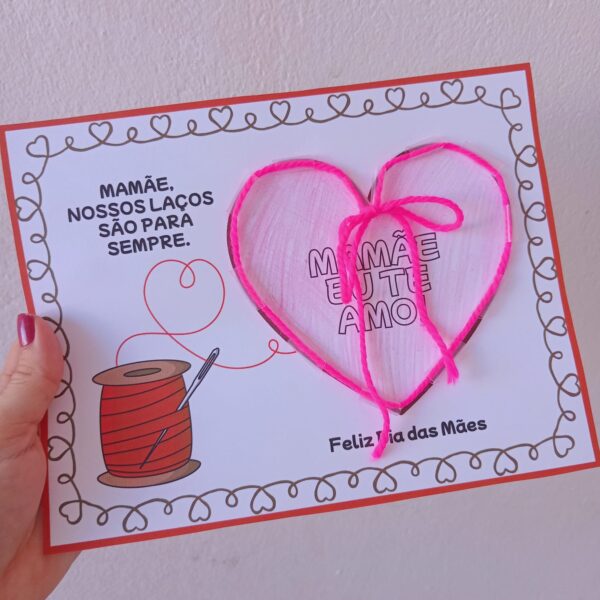 MAMÃE,
NOSSOS LAÇOS
SÃO PARA
SEMPRE.
MAMÃE
EU TE
AMO
Feliz Dia das Mães